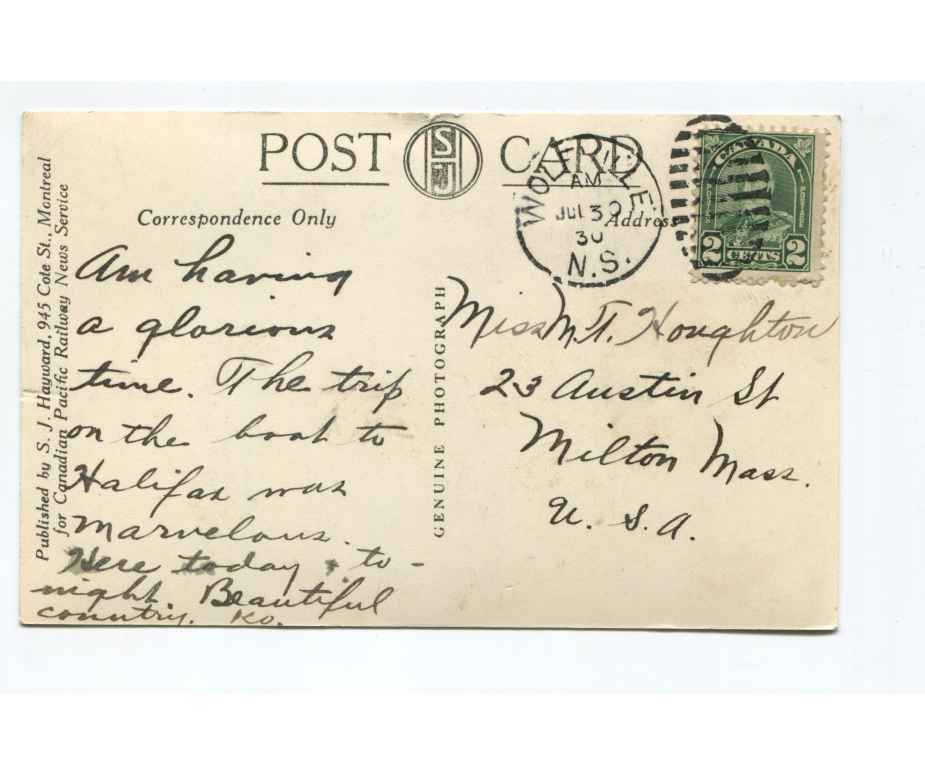 POST CARD
SJ
Correspondence Only
Address
WOLFVILLE
AM
JUL 30
30
N.S.
CANADA
2 CENTS 2
Published by S. J. Hayward, 945 Cote St., Montreal
for Canadian Pacific Railway News Service
GENUINE PHOTOGRAPH
Am having
a glorious
time. The trip
on the boat to
Halifax was
marvelous.
Here today & to-
night. Beautiful
country.
Miss M. T. Houghton
23 Austin St
Milton Mass.
U. S. A.